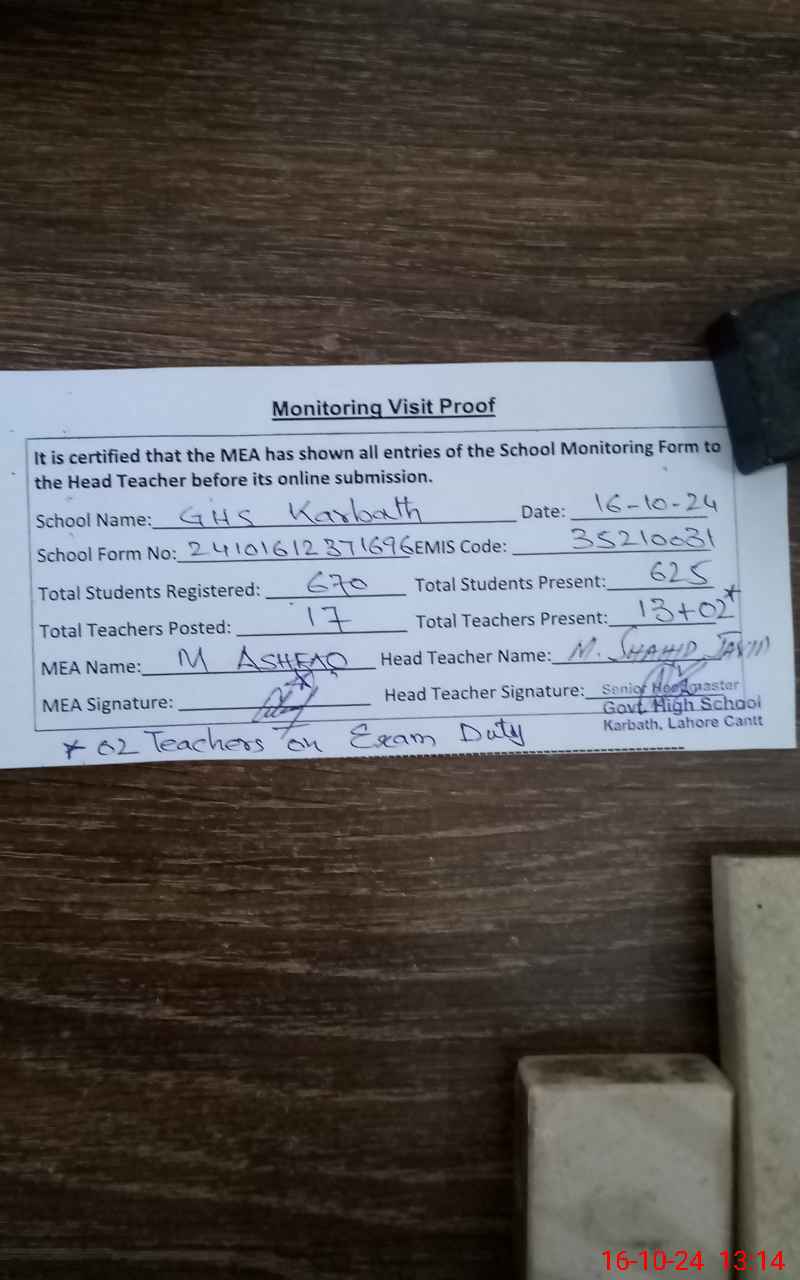 Monitoring Visit Proof
It is certified that the MEA has shown all entries of the School Monitoring Form to
the Head Teacher before its online submission.
School Name: GHS Karbath Date: 16-10-24
School Form No: 24101612371696 EMIS Code: 35210031
Total Students Registered: 670 Total Students Present: 625
Total Teachers Posted: 17 Total Teachers Present: 13+02*
MEA Name: M ASHFAQ Head Teacher Name: M. SHAHID JAVID
MEA Signature: Head Teacher Signature: Senior Headmaster
Govt. High School
Karbath, Lahore Cantt
* 02 Teachers on Exam Duty
16-10-24 13:14